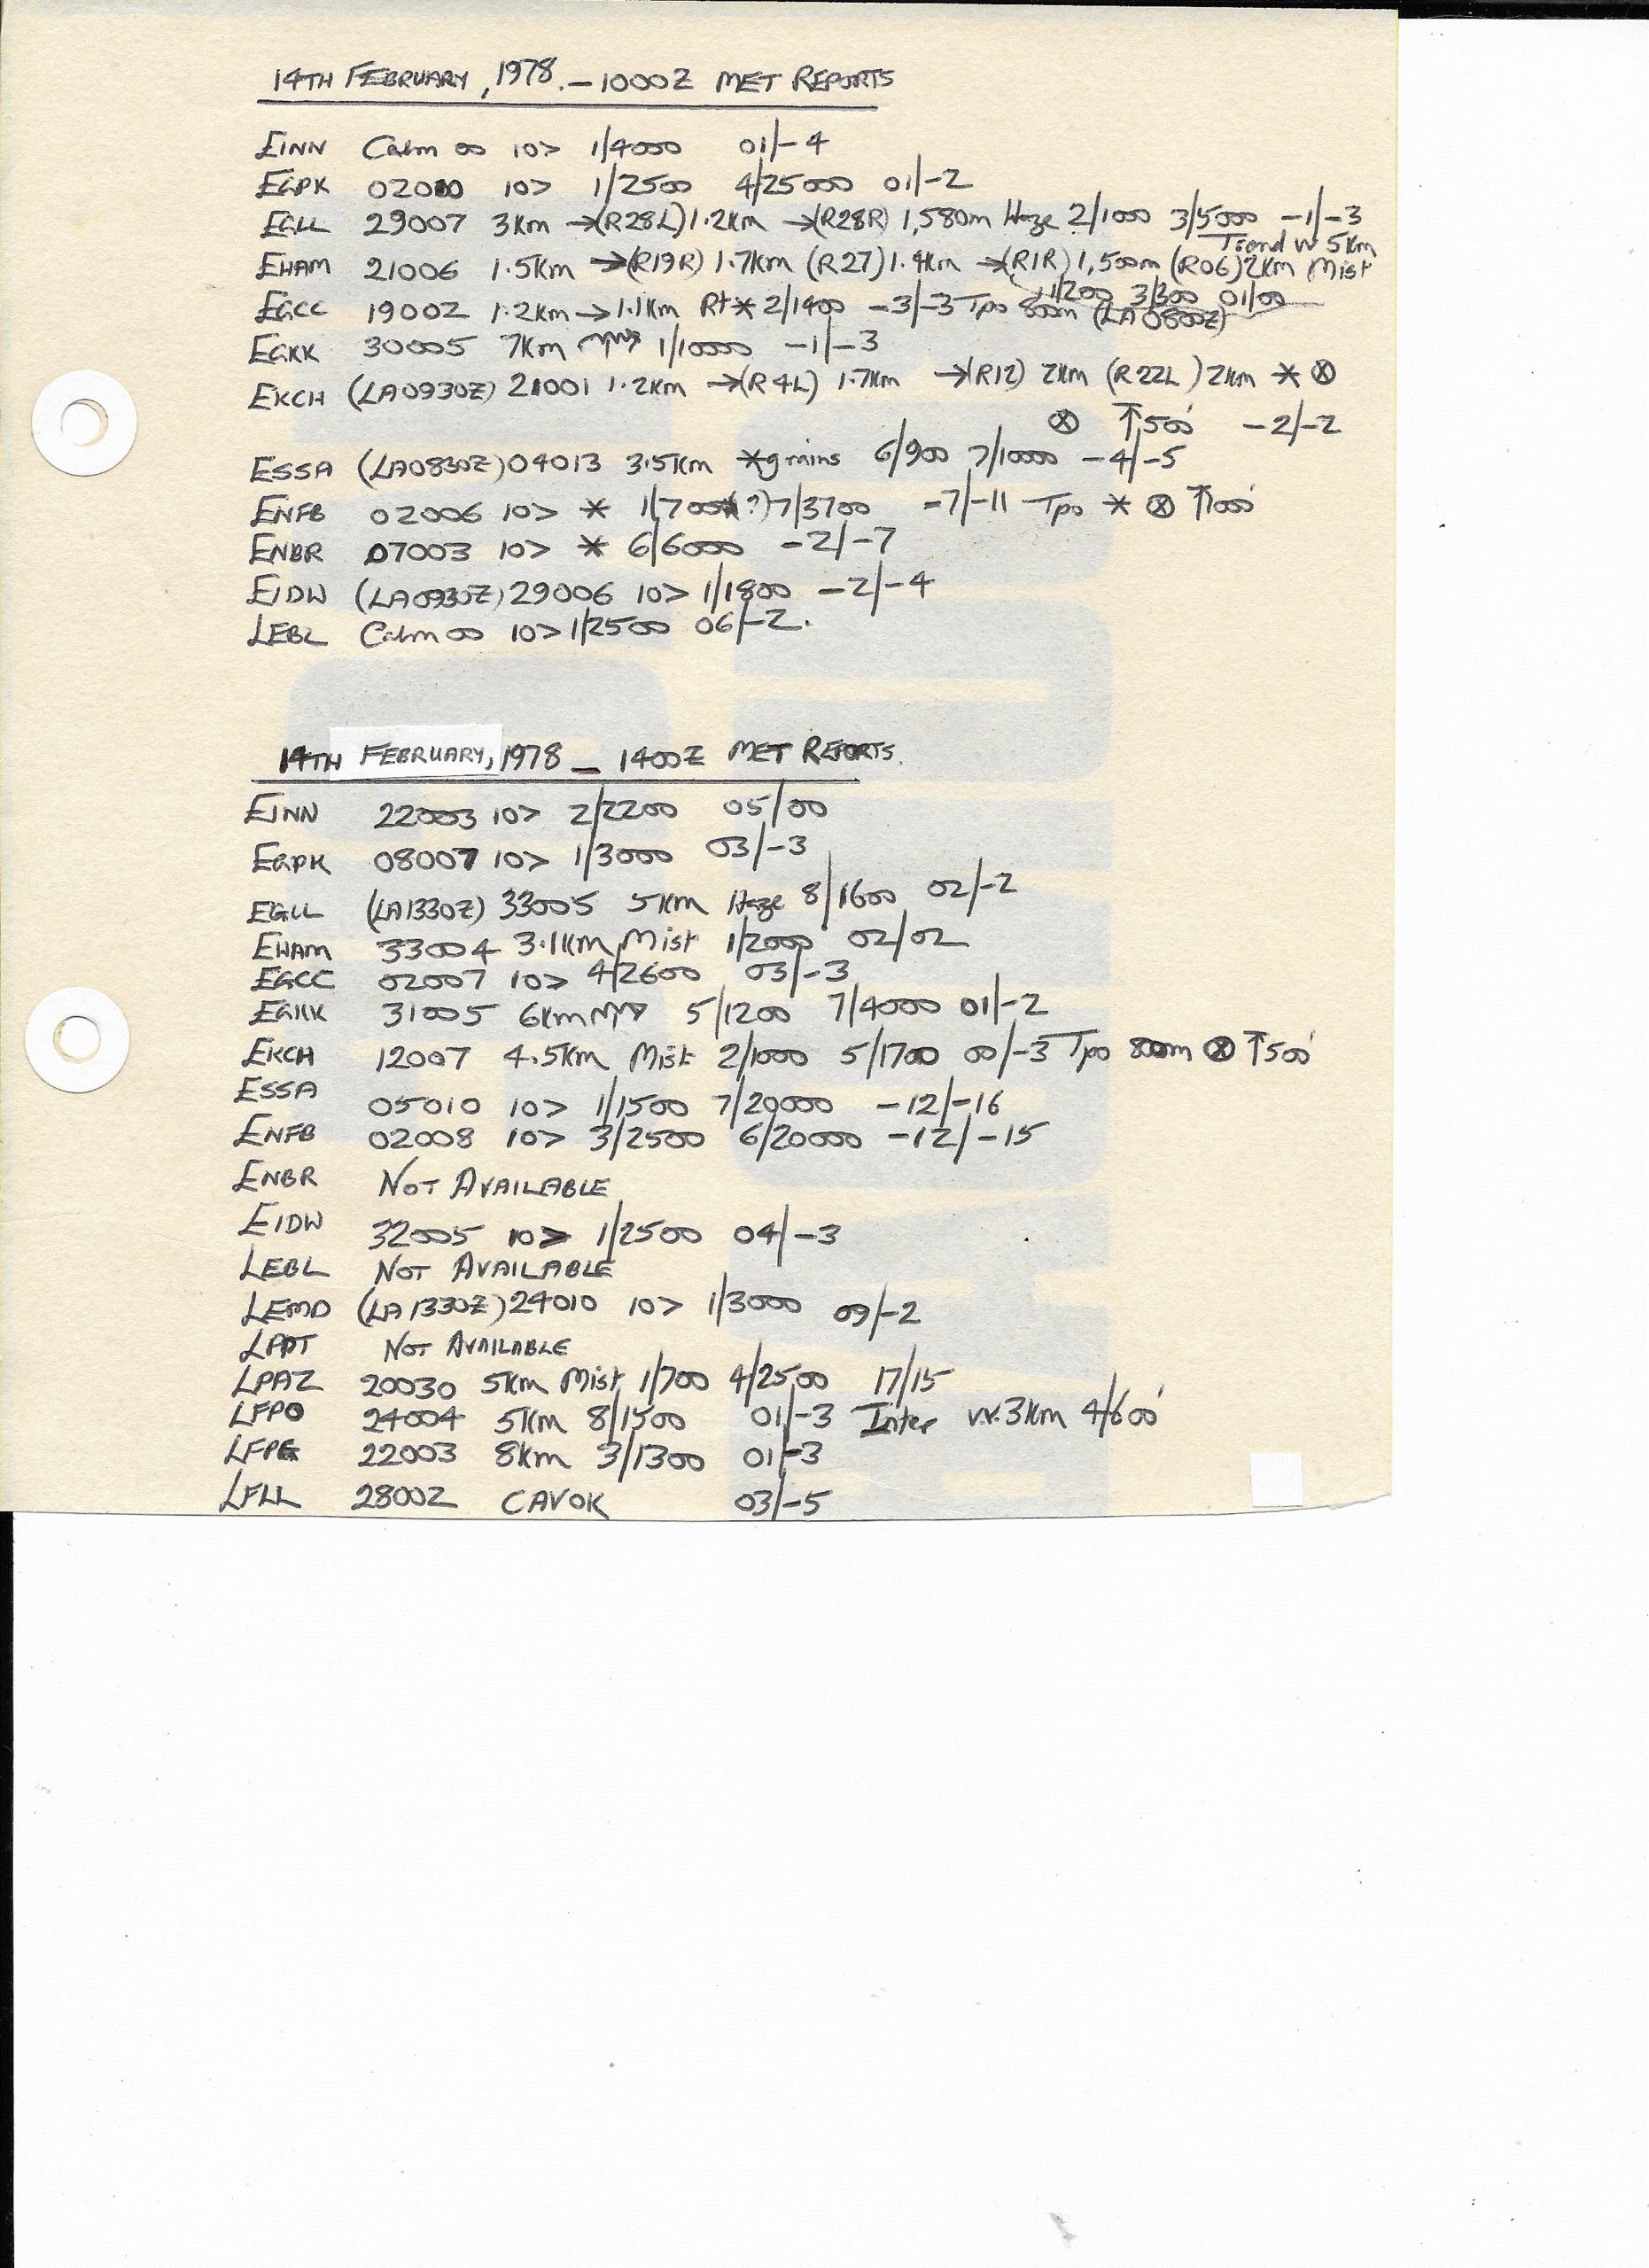 14TH FEBRUARY, 1978. – 1000Z MET REPORTS
EINN Calm 00 10> 1/4000 01/-4
EGPK 02010 10> 1/2500 4/25000 01/-2
EGLL 29007 3Km →(R28L) 1.2Km →(R28R) 1,580m Haze 2/1000 3/5000 -1/-3
Trend vv 5Km
EHAM 21006 1.5Km →(R19R) 1.7Km (R27) 1.4Km →(R1R) 1,500m (R06) 2Km Mist
1/200 3/300 01/00
EGCC 19002 1.2Km → 1.1Km Rt * 2/1400 -3/-3 Tpo 800m (LA 0800Z)
EGKK 30005 7Km 1/10000 -1/-3
EKCH (LA0930Z) 21001 1.2Km →(R4L) 1.7Km →(R12) 2Km (R22L) 2Km * ⊗
⊗ ↑500' -2/-2
ESSA (LA0830Z) 04013 3.5Km *grains 6/900 7/10000 -4/-5
ENFB 02006 10> * 1/700(?) 7/3700 -7/-11 Tpo * ⊗ ↑1000'
ENBR 07003 10> * 6/6000 -2/-7
EIDW (LA0930Z) 29006 10> 1/1800 -2/-4
LEBL Calm 00 10> 1/2500 06/-2.
14TH FEBRUARY, 1978 – 1400Z MET REPORTS.
EINN 22003 10> 2/2200 05/00
EGPK 08007 10> 1/3000 03/-3
EGLL (LA1330Z) 33005 5Km Haze 8/1600 02/-2
EHAM 33004 3.1Km Mist 1/2000 02/02
EGCC 02007 10> 4/2600 03/-3
EGKK 31005 6Km 5/1200 7/4000 01/-2
EKCH 12007 4.5Km Mist 2/1000 5/1700 00/-3 Tpo 800m ⊗ ↑500'
ESSA 05010 10> 1/1500 7/20000 -12/-16
ENFB 02008 10> 3/2500 6/20000 -12/-15
ENBR NOT AVAILABLE
EIDW 32005 10> 1/2500 04/-3
LEBL NOT AVAILABLE
LEMD (LA1330Z) 24010 10> 1/3000 09/-2
LPPT NOT AVAILABLE
LPAZ 20030 5Km Mist 1/700 4/2500 17/15
LFPO 24004 5Km 8/1500 01/-3 Inter vv. 3Km 4/600'
LFPG 22003 8Km 3/1300 01/-3
LFLL 28002 CAVOK 03/-5